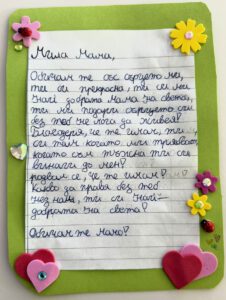 Мила Мами,
Обичам те със сърцето ми,
ти си прекрасна, ти си ми
Най добрата мама на света,
ти ми подари сърцето си
без теб не мога да живея!
Благодаря, че те имам, ти
си там когато ми трябваш,
когато съм тъжна ти си
винаги до мен!
радвам се, че те имам!
Какво да правя без теб
незнам, ти си най-
добрата на света!
Обичам те мамо!